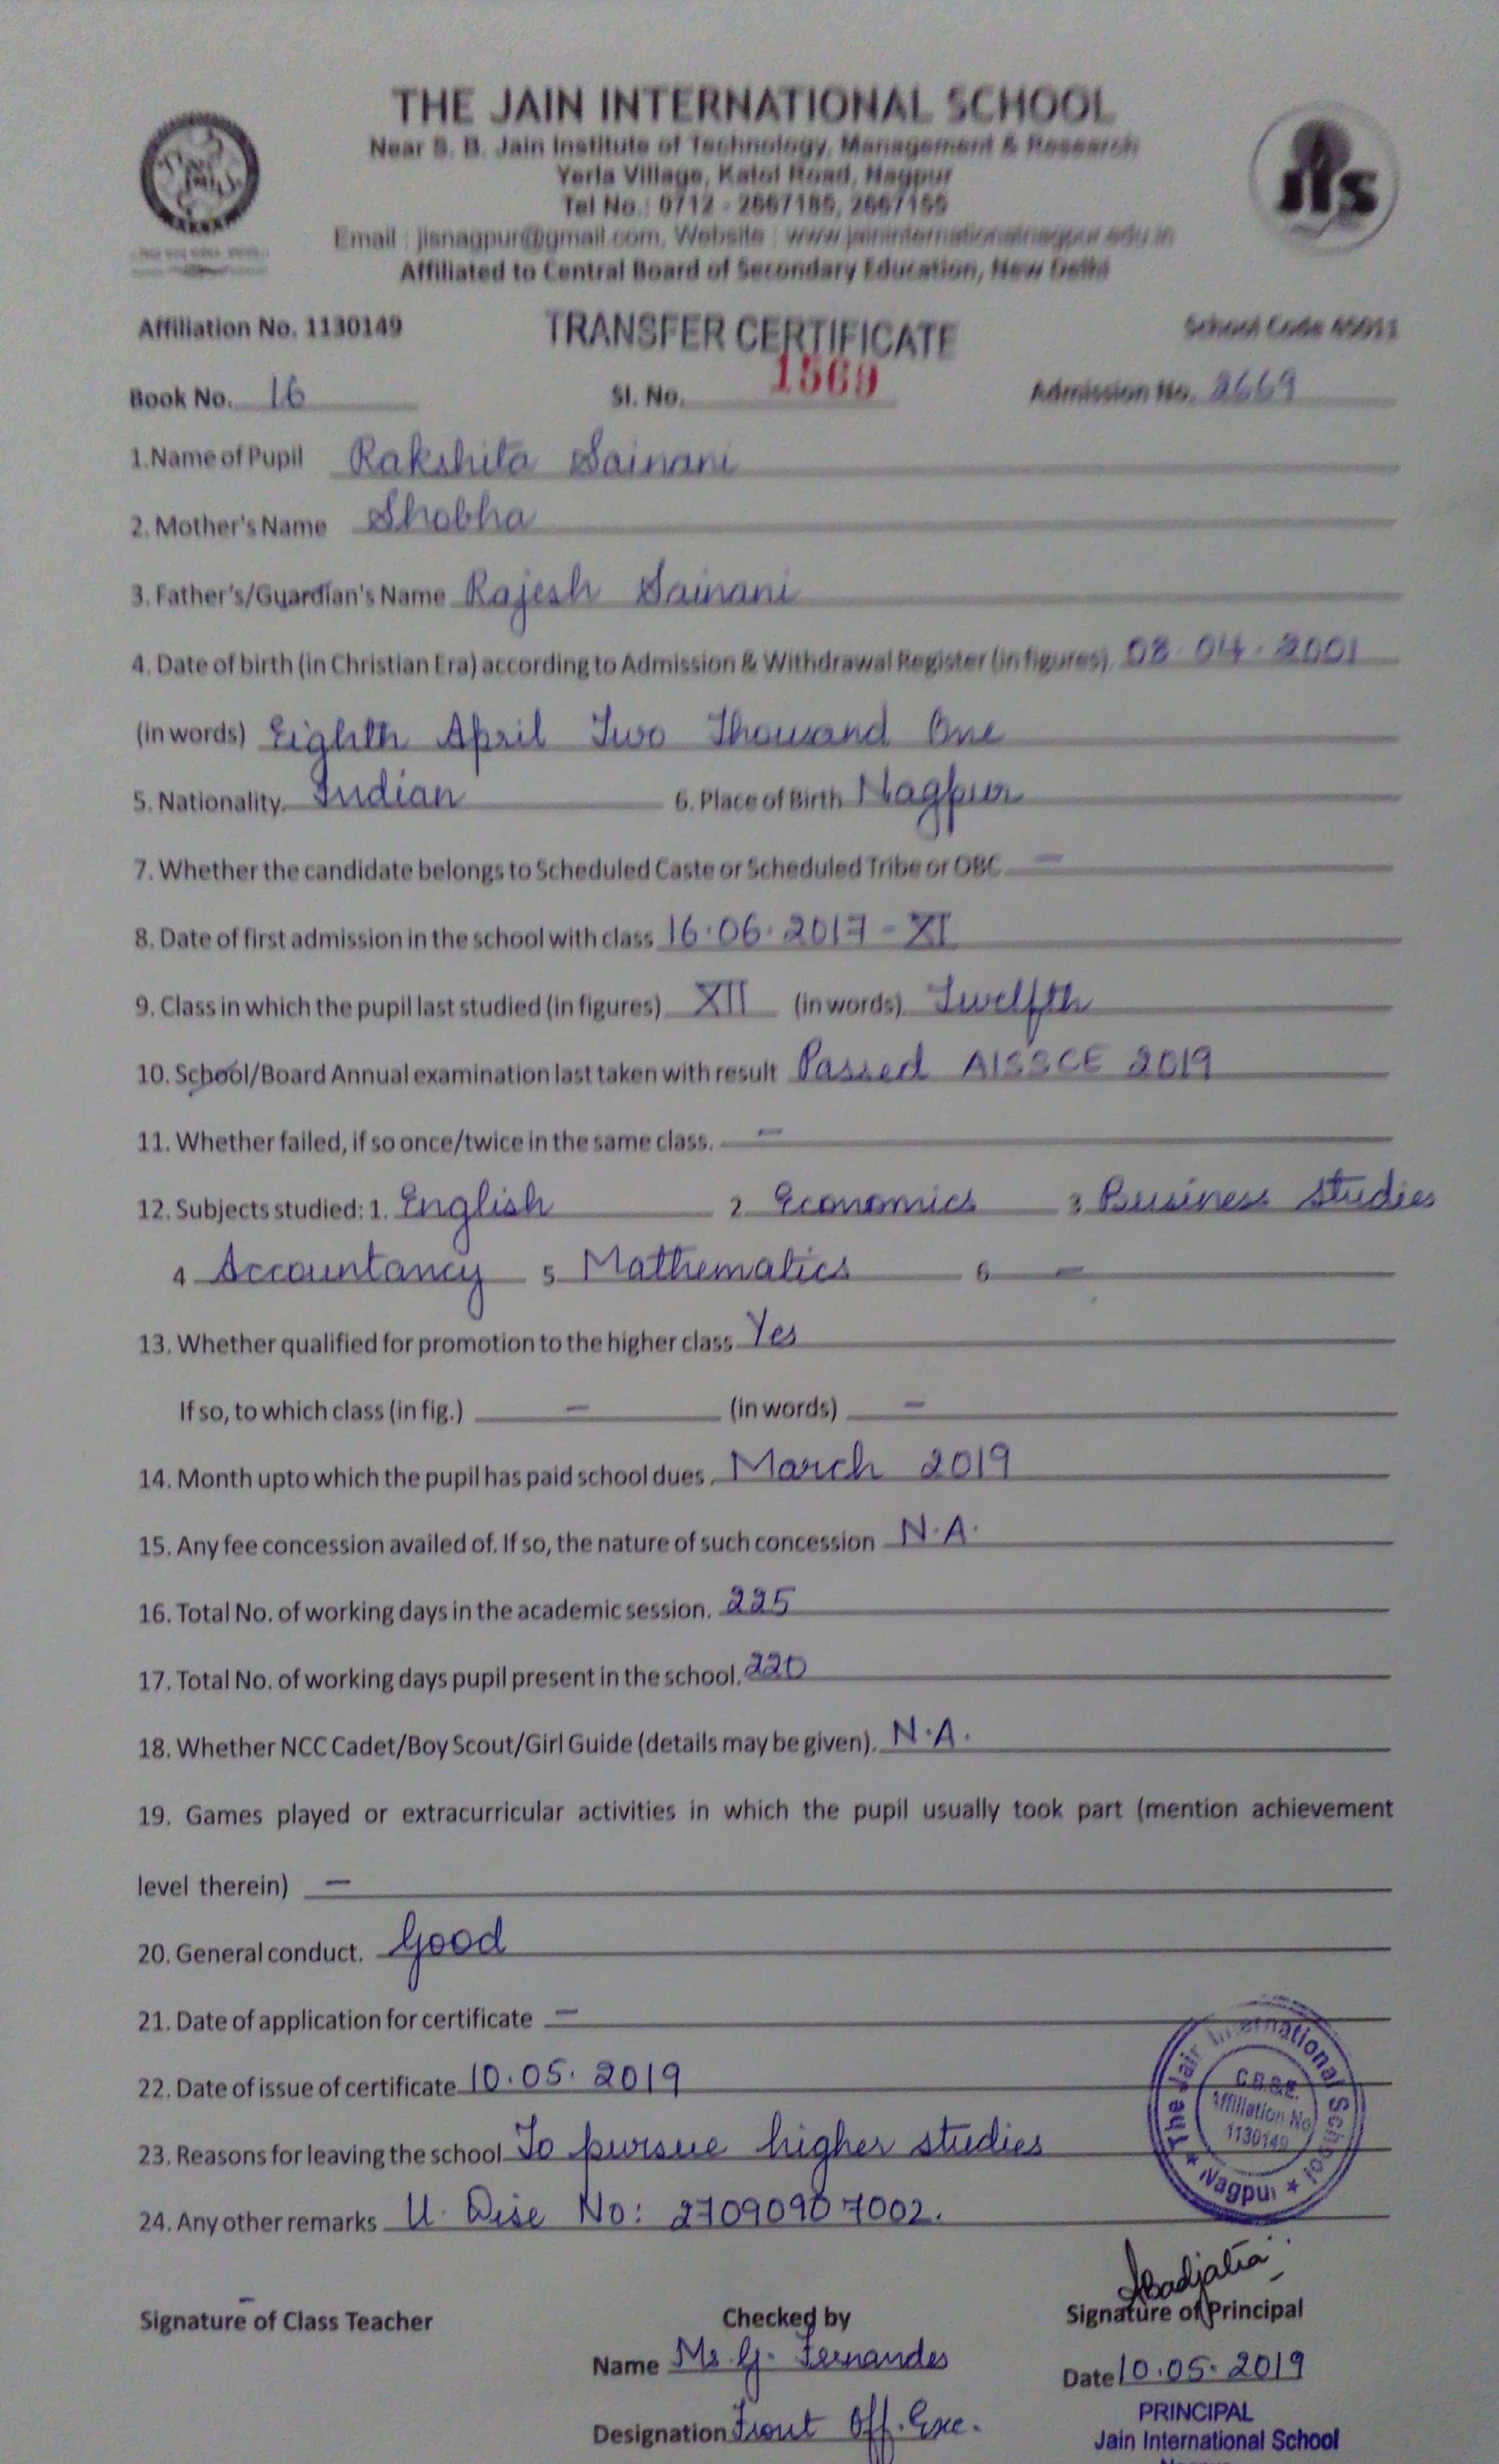 THE JAIN INTERNATIONAL SCHOOL
Near S. B. Jain Institute of Technology, Management & Research
Yerla Village, Katol Road, Nagpur
Tel No.: 0712 - 2667185, 2667155
Email : jisnagpur@gmail.com, Website : www.jaininternationalnagpur.edu.in
Affiliated to Central Board of Secondary Education, New Delhi
jis
Affiliation No. 1130149 TRANSFER CERTIFICATE School Code
Book No. 16 Sl. No. 1569 Admission No. 2669
1.Name of Pupil Rakshita Sainani
2. Mother's Name Shobha
3. Father's/Guardian's Name Rajesh Sainani
4. Date of birth (in Christian Era) according to Admission & Withdrawal Register (in figures) 08.04.2001
(in words) Eighth April Two Thousand One
5. Nationality. Indian 6. Place of Birth Nagpur
7. Whether the candidate belongs to Scheduled Caste or Scheduled Tribe or OBC –
8. Date of first admission in the school with class 16.06.2017 - XI
9. Class in which the pupil last studied (in figures) XII (in words) Twelfth
10. School/Board Annual examination last taken with result Passed AISSCE 2019
11. Whether failed, if so once/twice in the same class. –
12. Subjects studied: 1. English 2 Economics 3 Business Studies
4 Accountancy 5 Mathematics 6 –
13. Whether qualified for promotion to the higher class Yes
If so, to which class (in fig.) – (in words) –
14. Month upto which the pupil has paid school dues. March 2019
15. Any fee concession availed of. If so, the nature of such concession N.A.
16. Total No. of working days in the academic session. 225
17. Total No. of working days pupil present in the school. 220
18. Whether NCC Cadet/Boy Scout/Girl Guide (details may be given). N.A.
19. Games played or extracurricular activities in which the pupil usually took part (mention achievement
level therein) –
20. General conduct. Good
21. Date of application for certificate –
22. Date of issue of certificate 10.05.2019
23. Reasons for leaving the school To pursue higher studies
24. Any other remarks U. Dise No: 27090907002.
The Jain International School
C.B.S.E.
Affiliation No
1130149
★ Nagpur ★
–
Signature of Class Teacher Checked by Signature of Principal
Name Ms. G. Fernandes Date 10.05.2019
PRINCIPAL
Designation Front Off. Exe. Jain International School